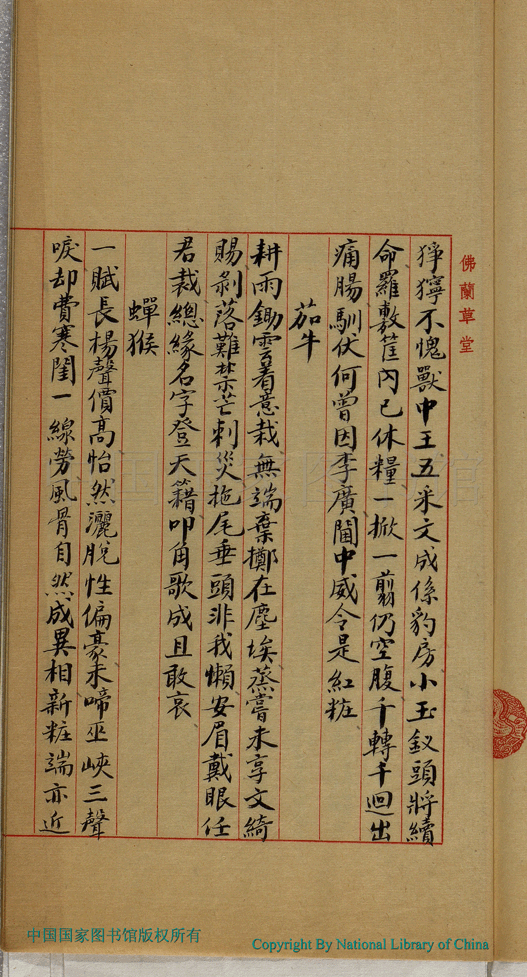 佛蘭草堂
猙獰不愧獸中王五采文成係豹房小玉釵頭將續
命羅敷筐內已休糧一掀一翦仍空腹千轉千迴出
痛腸馴伏何曾因李廣閫中威令是紅粧
茄牛
耕雨鋤雲着意栽無端棄擲在塵埃蒸嘗未享文綺
賜剝落難禁芒刺災拖尾垂頭非我懶安眉戴眼任
君裁總緣名字登天籟叩角歌成且敢哀
蟬猴
一賦長楊聲價高怡然灑脫性偏豪未啼巫峽三聲
唳却費寒閨一線勞風骨自然成異相新粧端亦近
中国国家图书馆版权所有
Copyright By National Library of China